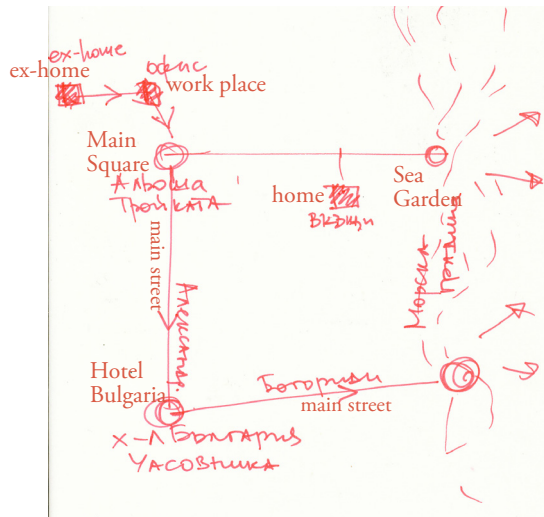 ex-home
ex-home
офис
work place
Main
Square
Альоша
Тройката
home
вкъщи
Sea
Garden
Морска
градина
main street
Александр.
Hotel
Bulgaria
Богориди
main street
х-л България
Часовника